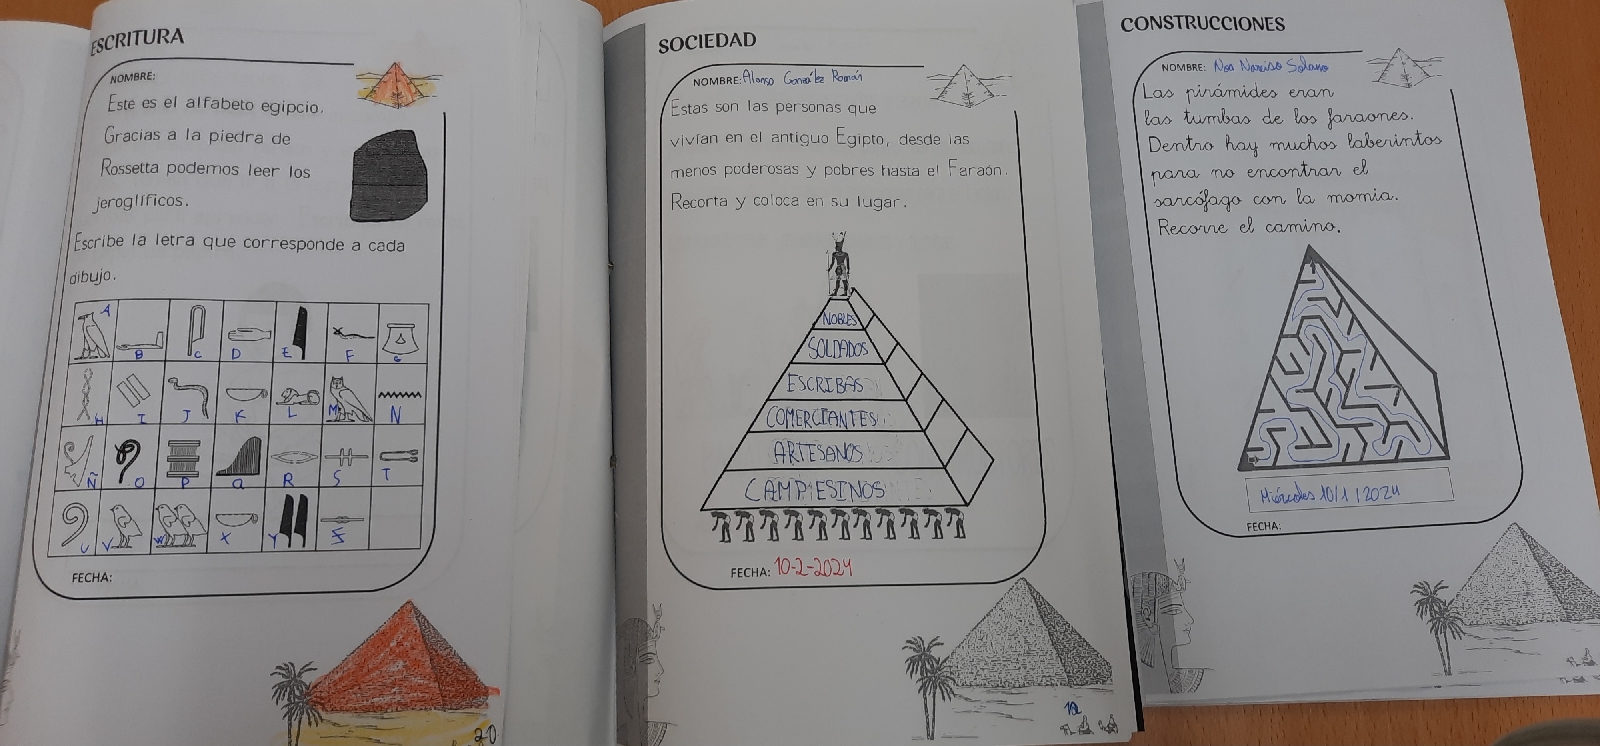 ESCRITURA
NOMBRE:
Este es el alfabeto egipcio.
Gracias a la piedra de
Rossetta podemos leer los
jeroglíficos.
Escribe la letra que corresponde a cada
dibujo.
A B C D E F G
H I J K L M N
Ñ O P Q R S T
U V W X Y Z
FECHA:
20
SOCIEDAD
NOMBRE: Alonso González Román
Estas son las personas que
vivían en el antiguo Egipto, desde las
menos poderosas y pobres hasta el Faraón.
Recorta y coloca en su lugar.
NOBLES
SOLDADOS
ESCRIBAS
COMERCIANTES
ARTESANOS
CAMPESINOS
FECHA: 10-2-2024
CONSTRUCCIONES
NOMBRE: Noa Narciso Solano
Las pirámides eran
las tumbas de los faraones.
Dentro hay muchos laberintos
para no encontrar el
sarcófago con la momia.
Recorre el camino.
Miércoles 10/1/2024
FECHA: